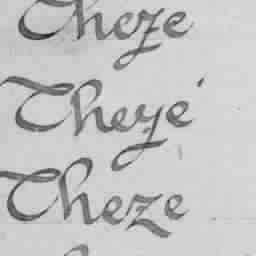 Cheze
Cheze
Cheze